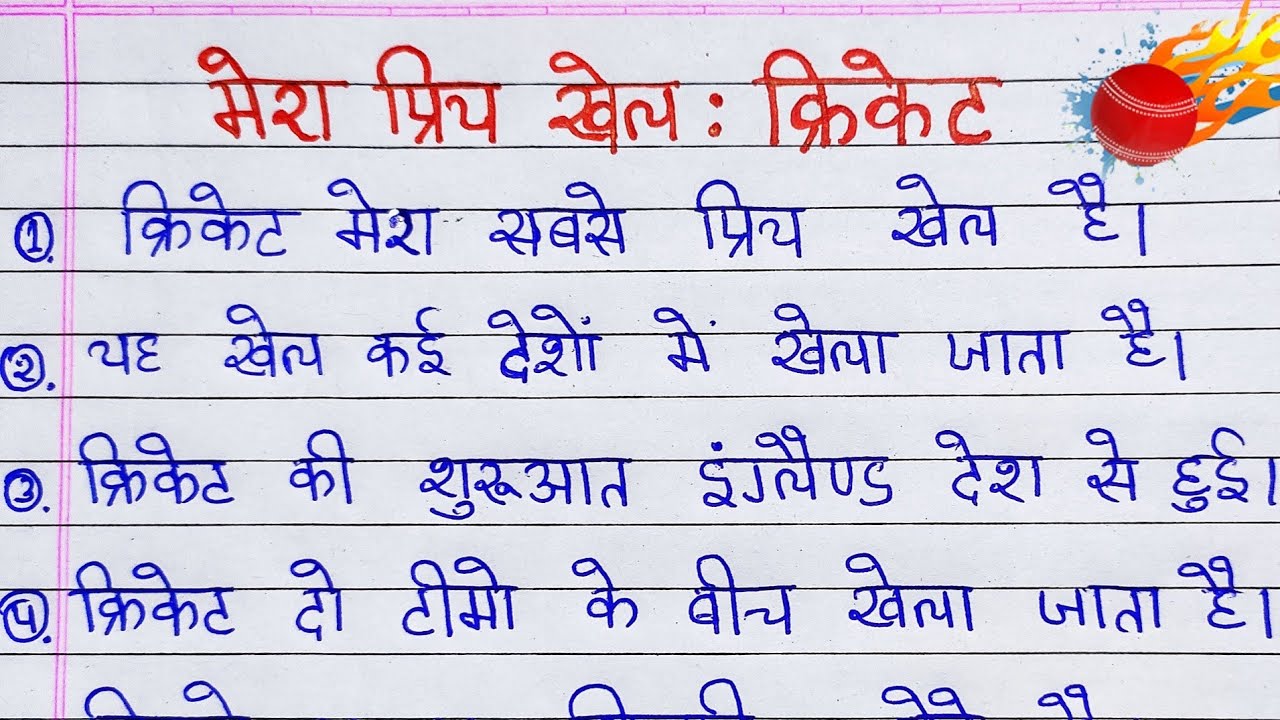 मेरा प्रिय खेल : क्रिकेट
①. क्रिकेट मेरा सबसे प्रिय खेल है।
②. यह खेल कई देशों में खेला जाता है।
③. क्रिकेट की शुरूआत इंग्लैण्ड देश से हुई।
④. क्रिकेट दो टीमो के बीच खेला जाता है।